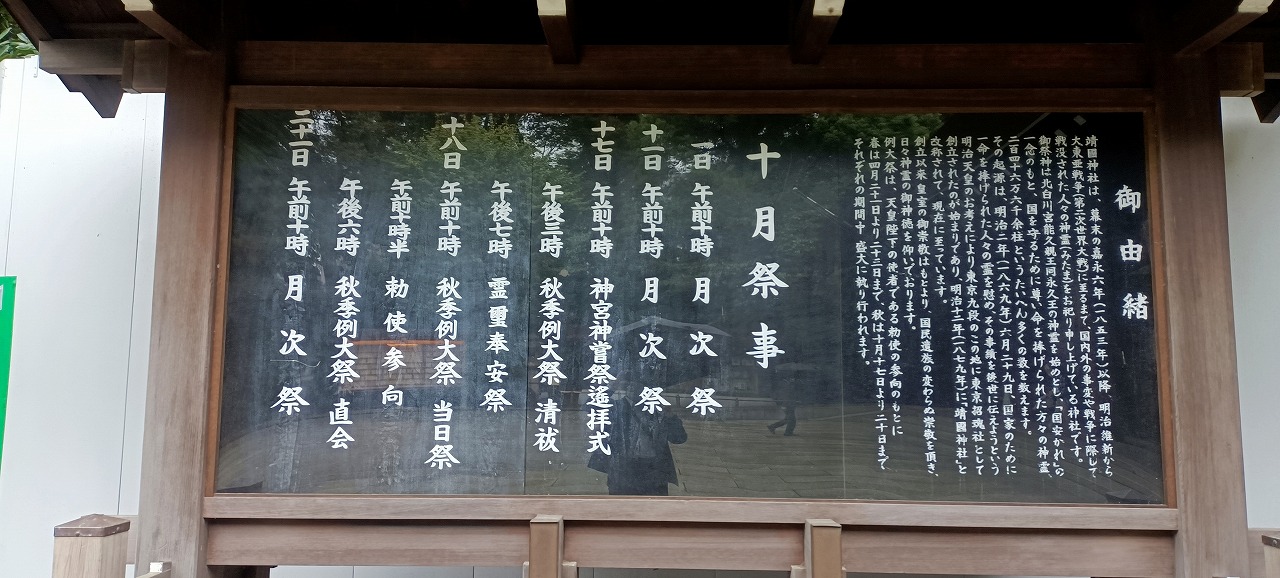 御由緒
靖國神社は、幕末の嘉永六年(一八五三年)以降、明治維新から
大東亜戦争(第二次世界大戦)に至るまで、国内外の事変や戦争に際して
戦没された人々の神霊(みたま)をお祀り申し上げている神社です。
御祭神は北白川宮能久親王同永久王の神霊を始めとし、「国安かれ」の
一念のもと、国を守るために尊い命を捧げられた方々の神霊、
二百四十六万六千余柱というたいへん多くの数を数えます。
その起源は、明治二年(一八六九年)六月二十九日、国家のために
一命を捧げられた人々の霊を慰め、その事績を後世に伝えようという
明治天皇のお考えにより、東京九段のこの地に東京招魂社として
創立されたのが始まりであり、明治十二年(一八七九年)に「靖國神社」と
改称されて、現在に至っています。
創立以来、皇室の御崇敬はもとより、国民遺族の変わらぬ崇敬を頂き、
日々神霊の御神徳を仰いでおります。
例大祭は、天皇陛下の使者である勅使の参向のもとに
春は四月二十一日より二十三日まで、秋は十月十七日より二十日まで
それぞれの期間中 盛大に執り行われます。
十月祭事
一日 午前十時 月次祭
十一日 午前十時 月次祭
十七日 午前十時 神宮神嘗祭遙拝式
午後三時 秋季例大祭 清祓
午後七時 霊璽奉安祭
十八日 午前十時 秋季例大祭 当日祭
午前十時半 勅使参向
午後六時 秋季例大祭 直会
二十一日 午前十時 月次祭